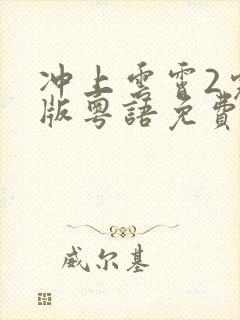 冲上雲霄2
版粵語免費
威尔基